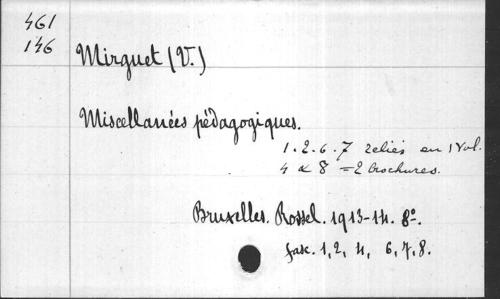 461
146
Mirguet (V.)
Miscellanées pédagogiques.
1.2.6.7 reliés en 1 Vol.
4 & 8 = 2 brochures.
Bruxelles. Rossel. 1913-14. 8°.
fasc. 1, 2, 4, 6, 7, 8.